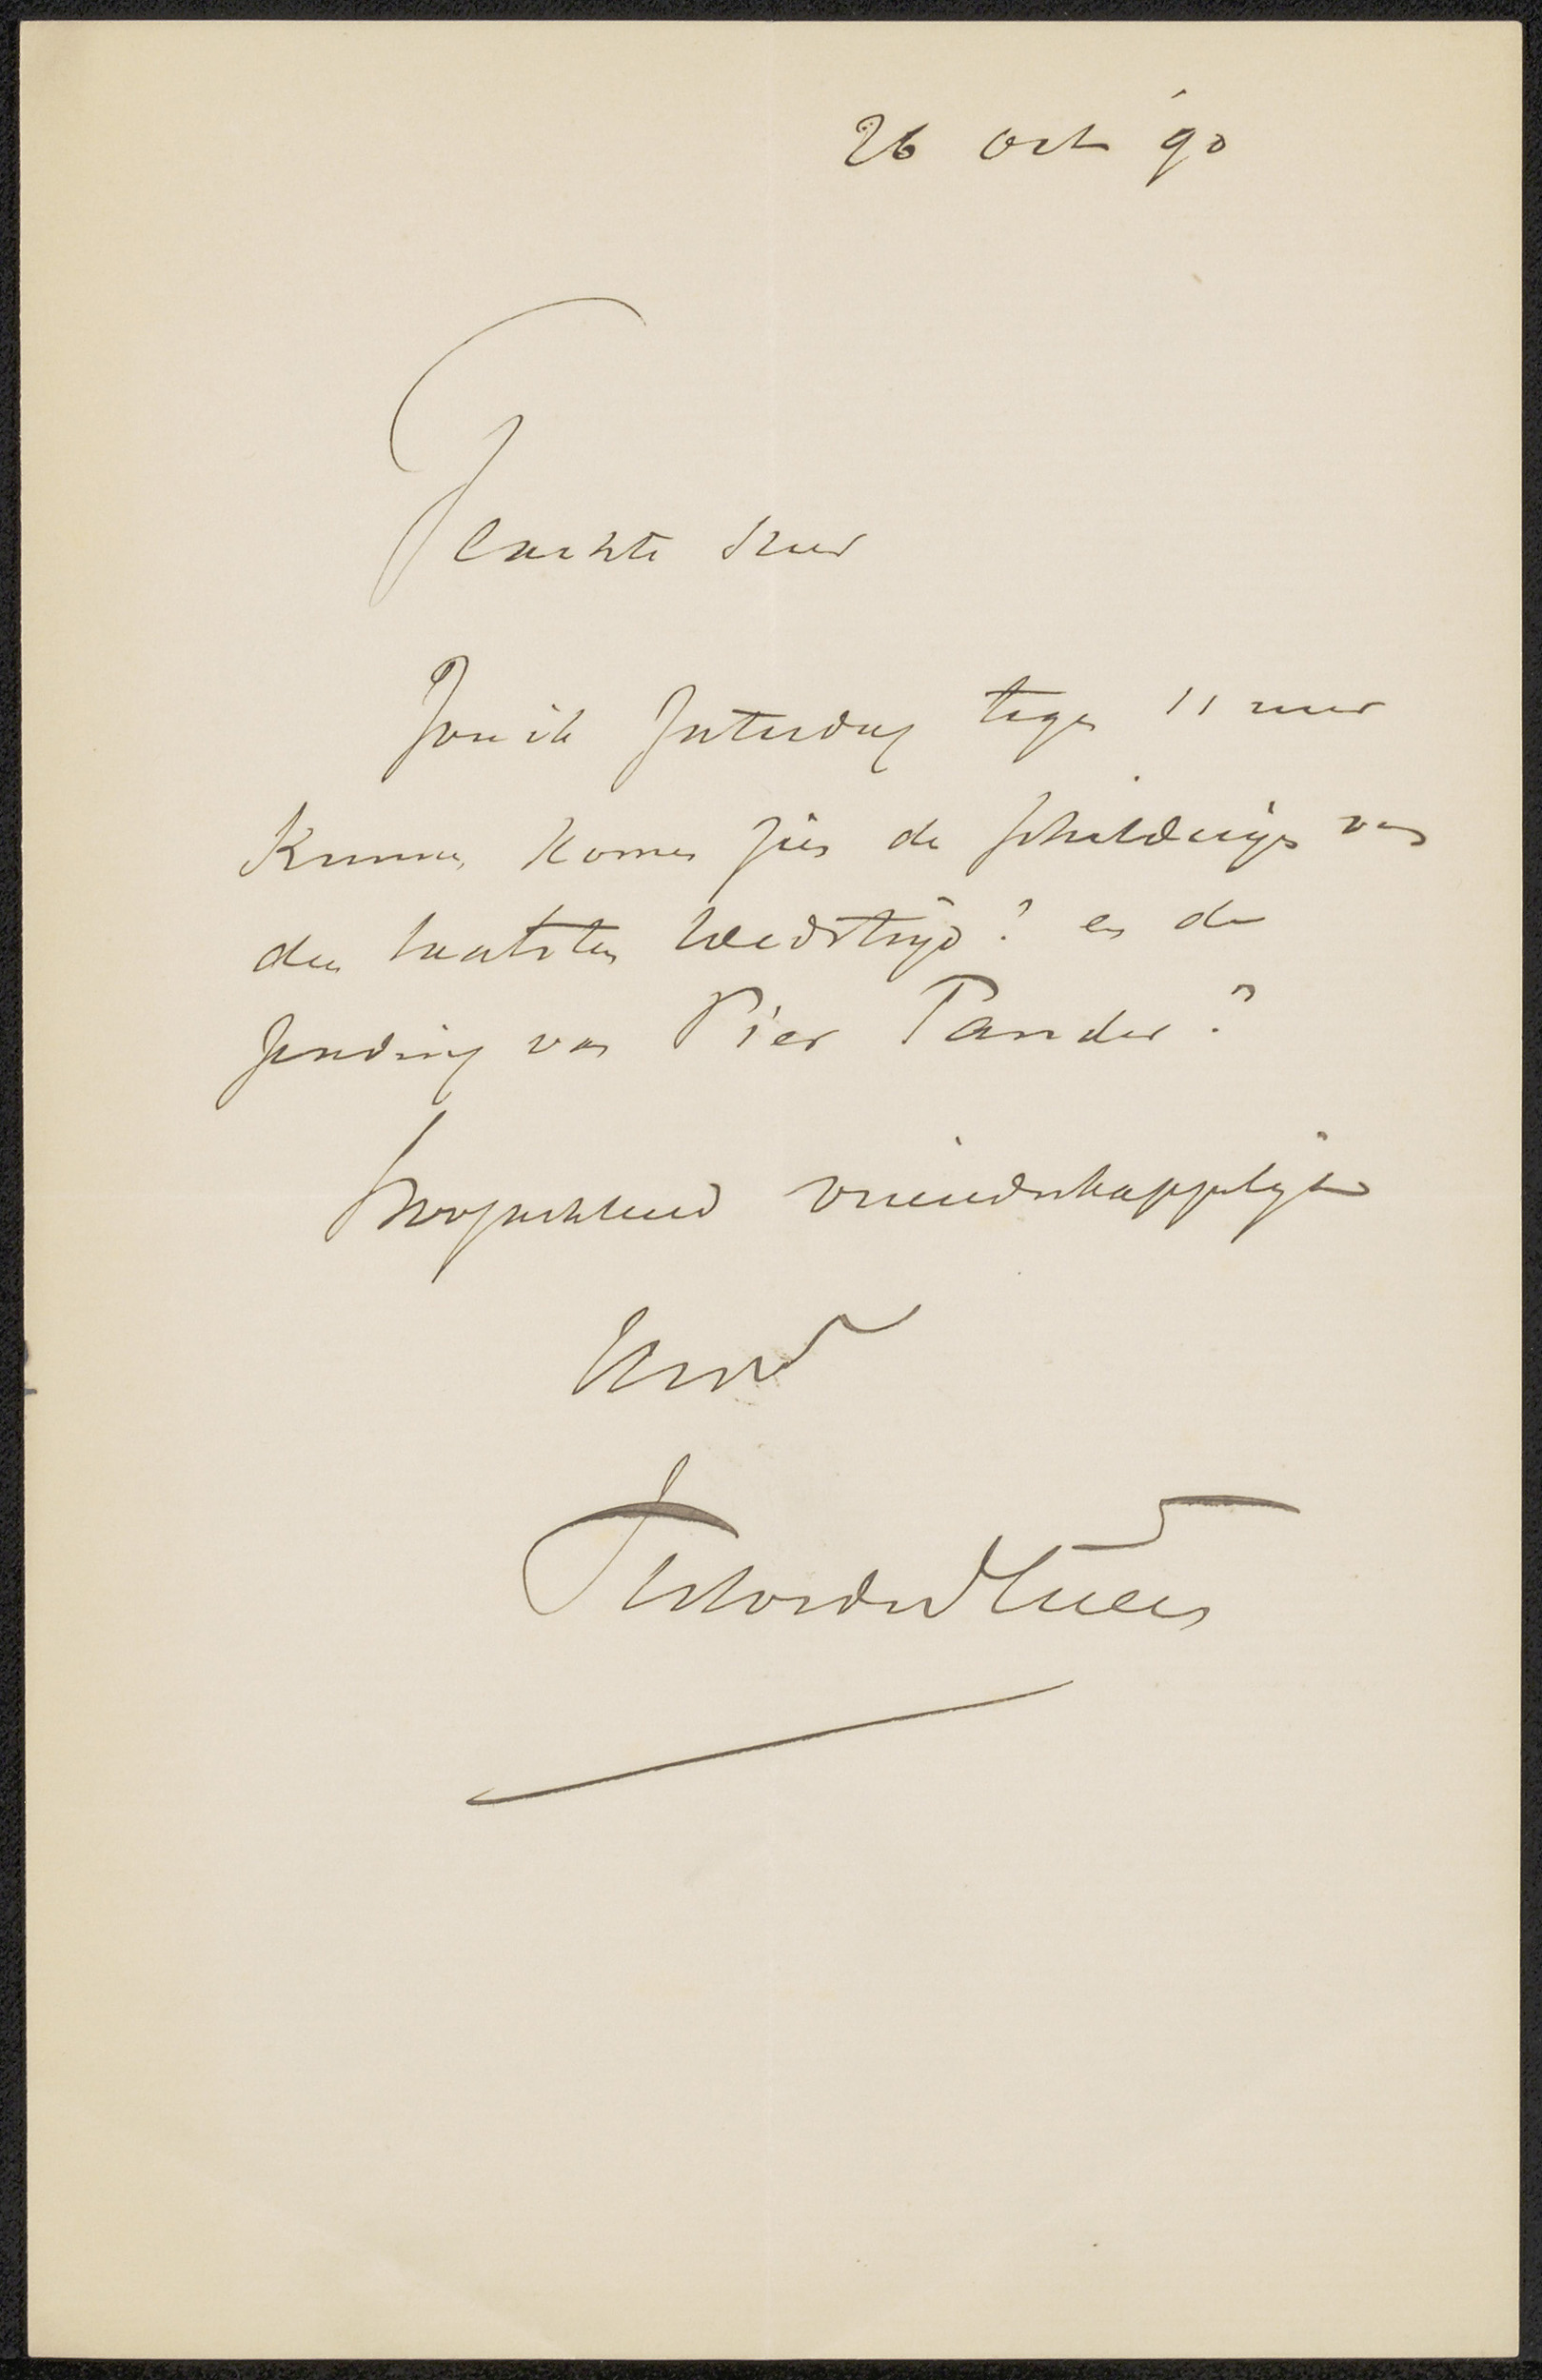 26 Oct '90
Geachte Heer
Zou ik Zaterdag tegen 11 uur
kunnen komen zien de schilderijen van
den laatsten Wedstrijd? en de
zending van Pier Pander?
Hoogachtend vriendschappelijk